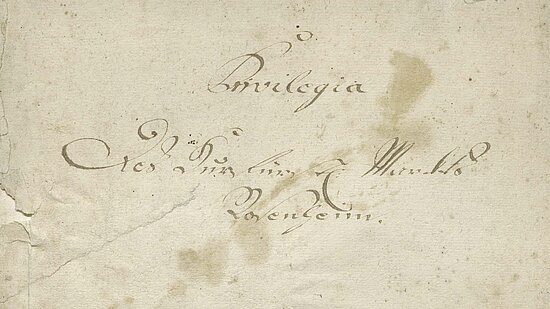 Privilegia
Des Kurfürstl. Markts
Rosenheim.